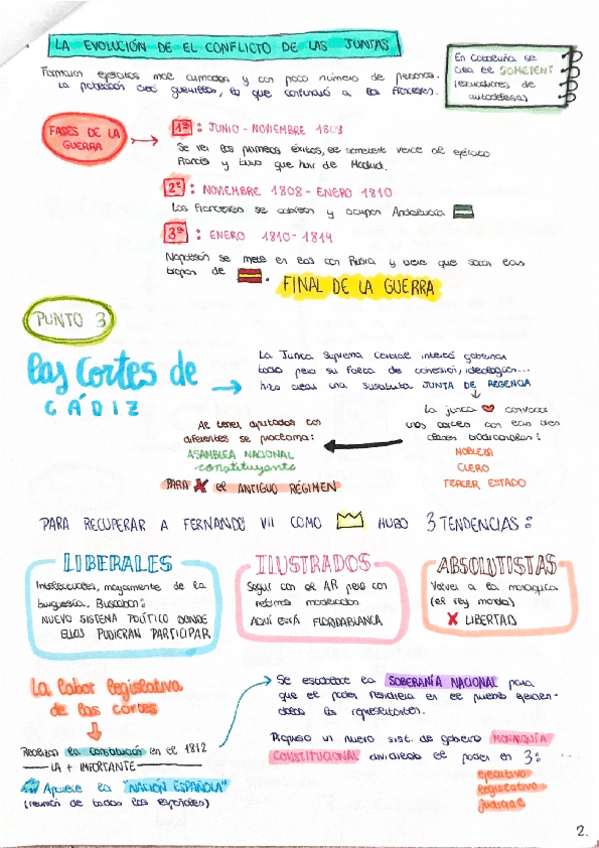 LA EVOLUCIÓN DE EL CONFLICTO DE LAS JUNTAS
Formaron ejércitos mal armados y con poco número de personas.
La población creó guerrillas, lo que continuó a los franceses.
En Cataluña se
crea el SOMETENT
(escuadrones de
autodefensa)
FASES DE LA
GUERRA
1ª: JUNIO - NOVIEMBRE 1808
Se ven los primeros éxitos, se somete vence al ejército
francés y tuvo que huir de Madrid.
2ª: NOVIEMBRE 1808 - ENERO 1810
Los franceses se cabrean y ocupan Andalucía
3ª: ENERO 1810-1814
Napoleón se mete en líos con Rusia y tiene que sacar las
tropas de
FINAL DE LA GUERRA
PUNTO 3
las Cortes de
CÁDIZ
La Junta Suprema Central intentó gobernar
todo pero su falta de cohesión, ideologías...
hizo crear una sustituta JUNTA DE REGENCIA
La junta convoca
unas cortes con las tres
clases tradicionales:
NOBLEZA
CLERO
TERCER ESTADO
Al tener diputados tan
diferentes se proclama:
ASAMBLEA NACIONAL
constituyente
PARA X el ANTIGUO RÉGIMEN
PARA RECUPERAR A FERNANDO VII COMO HUBO 3 TENDENCIAS:
LIBERALES
Intelectuales, mayormente de la
burguesía. Buscaban:
NUEVO SISTEMA POLÍTICO DONDE
ELLOS PUDIERAN PARTICIPAR
ILUSTRADOS
Seguir con el AR pero con
reformas moderadas
AQUÍ ESTÁ FLORIDABLANCA
ABSOLUTISTAS
Volver a la monarquía
(el rey manda)
X LIBERTAD
La labor legislativa
de las cortes
Realizan la constitución en el 1812
LA + IMPORTANTE
Aparece la "NACIÓN ESPAÑOLA"
(reunión de todos los españoles)
Se establece la SOBERANÍA NACIONAL para
que el poder residiera en el pueblo
los representantes.
Propuso un nuevo sist. de gobierno MONARQUÍA
CONSTITUCIONAL dividiendo el poder en 3:
ejecutivo
legislativo
judicial
2.